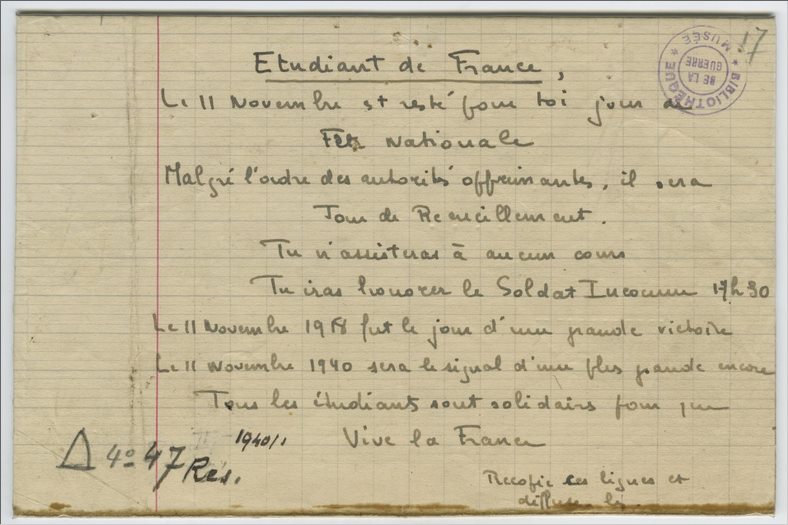 17
BIBLIOTHÈQUE * MUSÉE *
DE LA
GUERRE
Etudiant de France,
Le 11 Novembre st resté pour toi jour de
Fête Nationale
Malgré l'ordre des autorités opprimantes, il sera
Jour de Recueillement.
Tu n'assisteras à aucun cours
Tu iras honorer le Soldat Inconnu 17h30
Le 11 Novembre 1918 fut le jour d'une grande victoire
Le 11 Novembre 1940 sera le signal d'une plus grande encore
Tous les étudiants sont solidairs pour que
Vive la France
1940/1
Δ 4º 47 Rés.
Recopie ces lignes et
diffuse les.